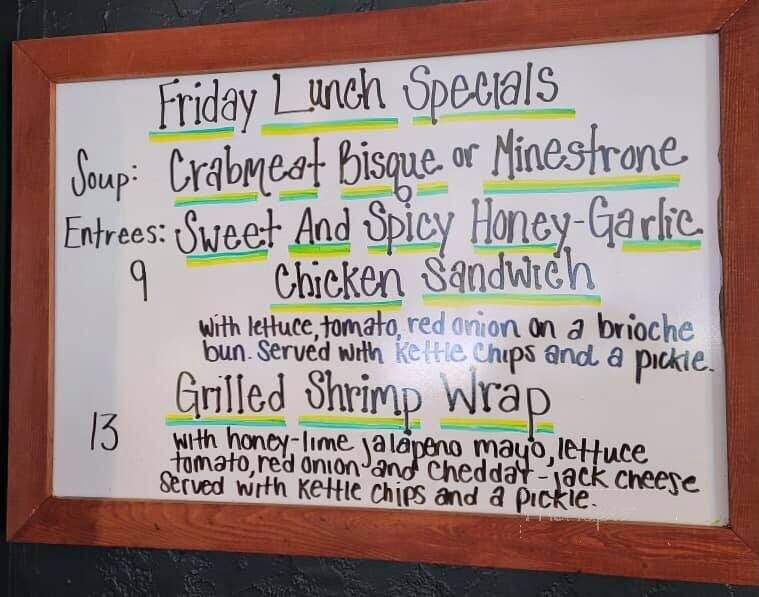 Friday Lunch Specials
Soup: Crabmeat Bisque or Minestrone
Entrees: Sweet And Spicy Honey-Garlic
9 Chicken Sandwich
with lettuce, tomato, red onion on a brioche
bun. Served with Kettle Chips and a pickle.
Grilled Shrimp Wrap
13 with honey-lime jalapeno mayo, lettuce
tomato, red onion and Cheddar-jack cheese
Served with Kettle Chips and a pickle.